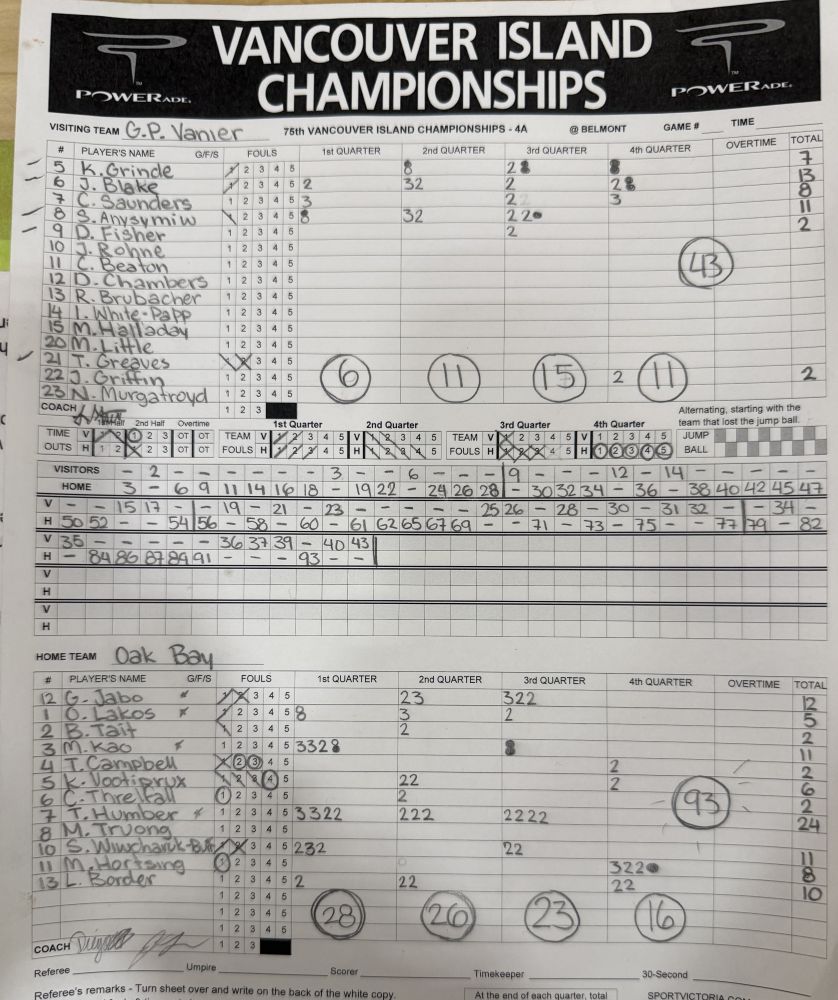 VANCOUVER ISLAND
CHAMPIONSHIPS
POWERADE.
POWERADE.
VISITING TEAM G.P. Vanier 75th VANCOUVER ISLAND CHAMPIONSHIPS - 4A @ BELMONT GAME # TIME
# PLAYER'S NAME G/F/S FOULS 1st QUARTER 2nd QUARTER 3rd QUARTER 4th QUARTER OVERTIME TOTAL
5 K. Grinde 1 2 3 4 5 8 2 8 8 7
6 J. Blake 1 2 3 4 5 2 32 2 2 8 13
7 C. Saunders 1 2 3 4 5 3 2 3 8
8 S. Anysymiw 1 2 3 4 5 8 32 22 11
9 D. Fisher 1 2 3 4 5 2 2
10 J. Rohne 1 2 3 4 5
11 C. Beaton 1 2 3 4 5 43
12 D. Chambers 1 2 3 4 5
13 R. Brubacher 1 2 3 4 5
14 I. White-Papp 1 2 3 4 5
15 M. Halladay 1 2 3 4 5
20 M. Little 1 2 3 4 5
21 T. Greaves 1 2 3 4 5
22 J. Griffin 1 2 3 4 5 6 11 15 2 11 2
23 N. Murgatroyd 1 2 3 4 5
COACH 1 2 3
1st Half 2nd Half Overtime 1st Quarter 2nd Quarter 3rd Quarter 4th Quarter Alternating, starting with the team that lost the jump ball.
TIME V 1 2 1 2 3 OT OT TEAM V 1 2 3 4 5 V 1 2 3 4 5 TEAM V 1 2 3 4 5 V 1 2 3 4 5 JUMP
OUTS H 1 2 1 2 3 OT OT FOULS H 1 2 3 4 5 H 1 2 3 4 5 FOULS H 1 2 3 4 5 H 1 2 3 4 5 BALL
VISITORS - 2 - - - - - - 3 - - 6 - - - 9 - - - 12 - 14 - - - - -
HOME 3 - 6 9 11 14 16 18 - 19 22 - 24 26 28 - 30 32 34 - 36 - 38 40 42 45 47
V - - 15 17 - - 19 - 21 - 23 - - - - - 25 26 - 28 - 30 - 31 32 - - - 34 -
H 50 52 - - 54 56 - 58 - 60 - 61 62 65 67 69 - - 71 - 73 - 75 - - 77 79 - 82
V 35 - - - - - 36 37 39 - 40 43
H - 84 86 87 89 91 - - - 93 - -
V
H
V
H
HOME TEAM Oak Bay
# PLAYER'S NAME G/F/S FOULS 1st QUARTER 2nd QUARTER 3rd QUARTER 4th QUARTER OVERTIME TOTAL
12 G. Jabo 1 2 3 4 5 23 322 12
1 O. Lakos 1 2 3 4 5 8 3 2 5
2 B. Tait 1 2 3 4 5 2 2
3 M. Kao 1 2 3 4 5 3328 8 11
4 T. Campbell 1 2 3 4 5 2 2
5 K. Vootiprux 1 2 3 4 5 22 2 6
6 C. Threlfall 1 2 3 4 5 2 93 2
7 T. Humber 1 2 3 4 5 3322 222 2222 24
8 M. Truong 1 2 3 4 5
10 S. Wiwcharuk-B 1 2 3 4 5 232 22 11
11 M. Hortsing 1 2 3 4 5 322 8
13 L. Border 1 2 3 4 5 2 22 22 10
1 2 3 4 5
1 2 3 4 5 28 26 23 16
1 2 3 4 5
COACH 1 2 3
Referee Umpire Scorer Timekeeper 30-Second
Referee's remarks - Turn sheet over and write on the back of the white copy. At the end of each quarter, total SPORTVICTORIA.COM